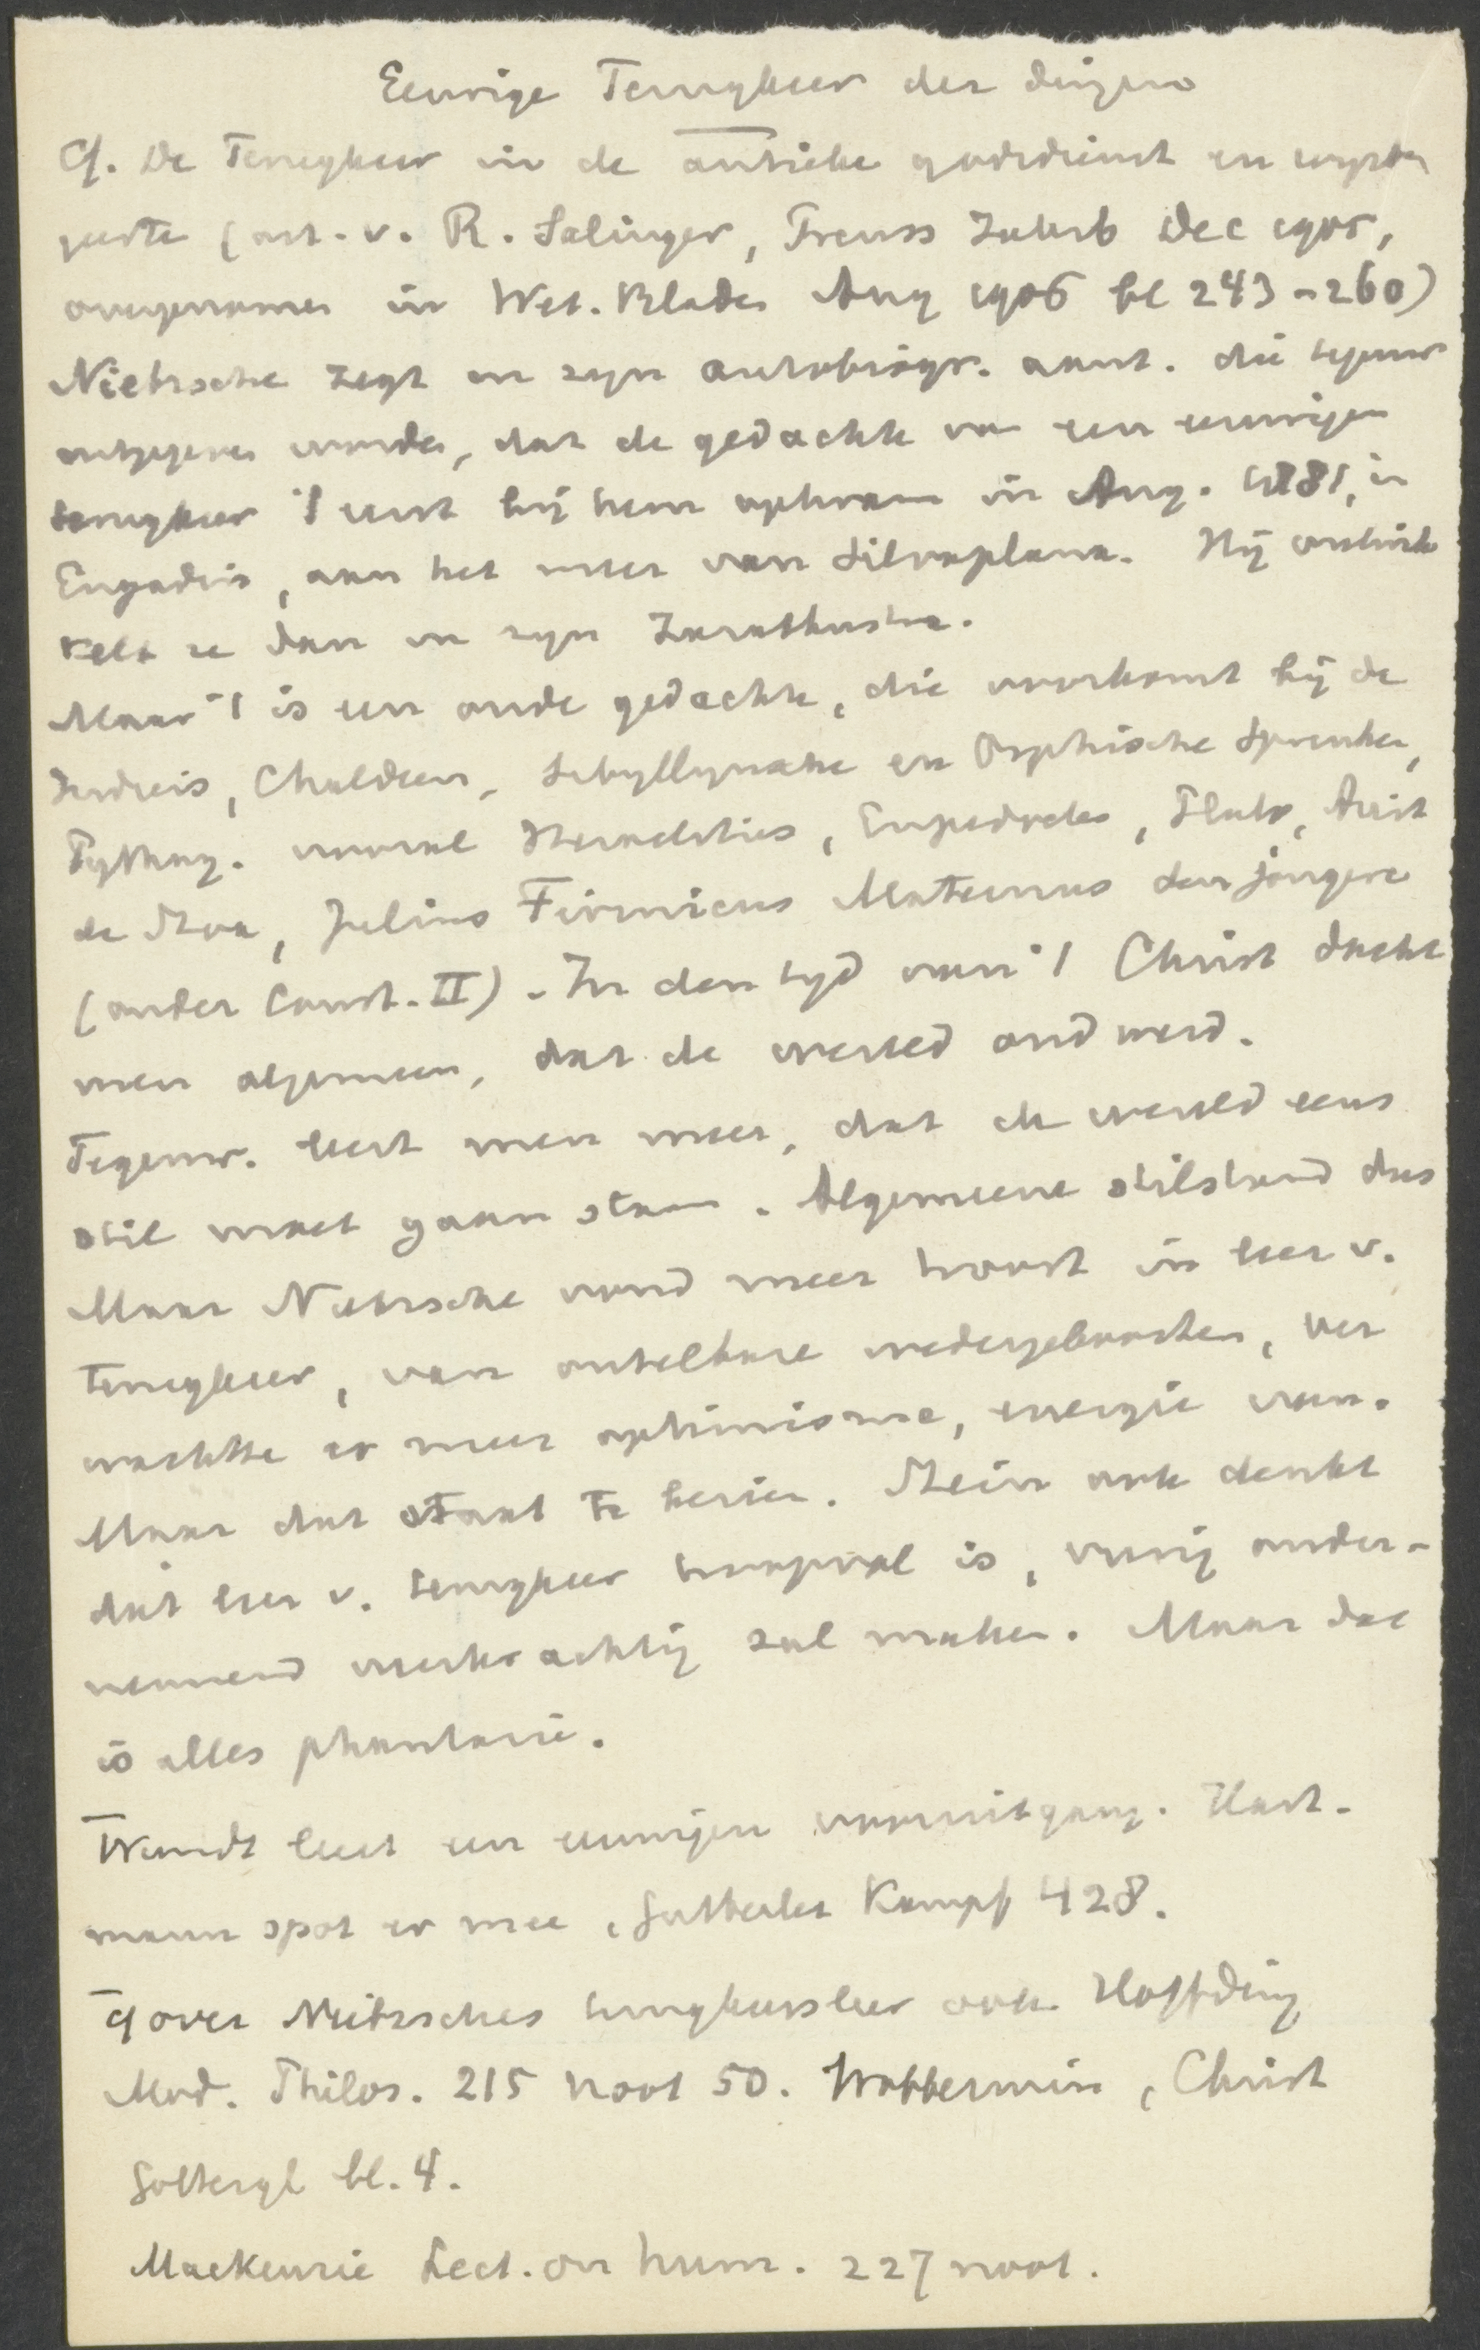 Eeuwige Terugkeer der dingen
Cf. De Terugkeer in de antieke godsdienst en wijsbe
geerte (art. v. R. Salinger, Preuss Jahrb Dec 1905,
overgenomen in Wet. Bladen Aug 1906 bl 243-260)
Nietzsche zegt in zijn autobiogr. aant. die tegenw
uitgegeven worden, dat de gedachte van een eeuwigen
terugkeer 't eerst bij hem opkwam in Aug. 1881, in
Engadin, aan het meer van Silvaplana. Hij ontwik
kelt ze dan in zijn Zarathustra.
Maar 't is een oude gedachte, die voorkomt bij de
Indiers, Chaldeen, Sibyllijnsche en Orphische Spreuken,
Pythag. vooral Heraclitus, Empedocles, Plato, Arist
de Stoa, Julius Firmicus Maternus den jongere
(onder Const. II). In den tijd van 't Christ dacht
men algemeen, dat de wereld oud werd.
Tegenw. leert men meer, dat de wereld eens
stil moet gaan staan. Algemeene stilstand dus
Maar Nietzsche vond meer troost in leer v.
Terugkeer, van ontelbare wedergeboorten, ver
wachtte er meer optimisme, energie van.
Maar dat staat te bezien. Stein ook denkt
dat leer v. terugkeer hoopvol is, vurig onder-
nemend werkzachtig zal maken. Maar dat
is alles phantasie.
Wundt leert een eeuwigen vooruitgang. Hart-
mann spot er mee, Gutberlet Kampf 428.
Cf over Nietzsches terugkeersleer ook Höffding
Mod. Philos. 215 noot 50. Wobbermin, Christ
Gottesgl bl. 4.
MacKenzie Lect. on hum. 227 noot.